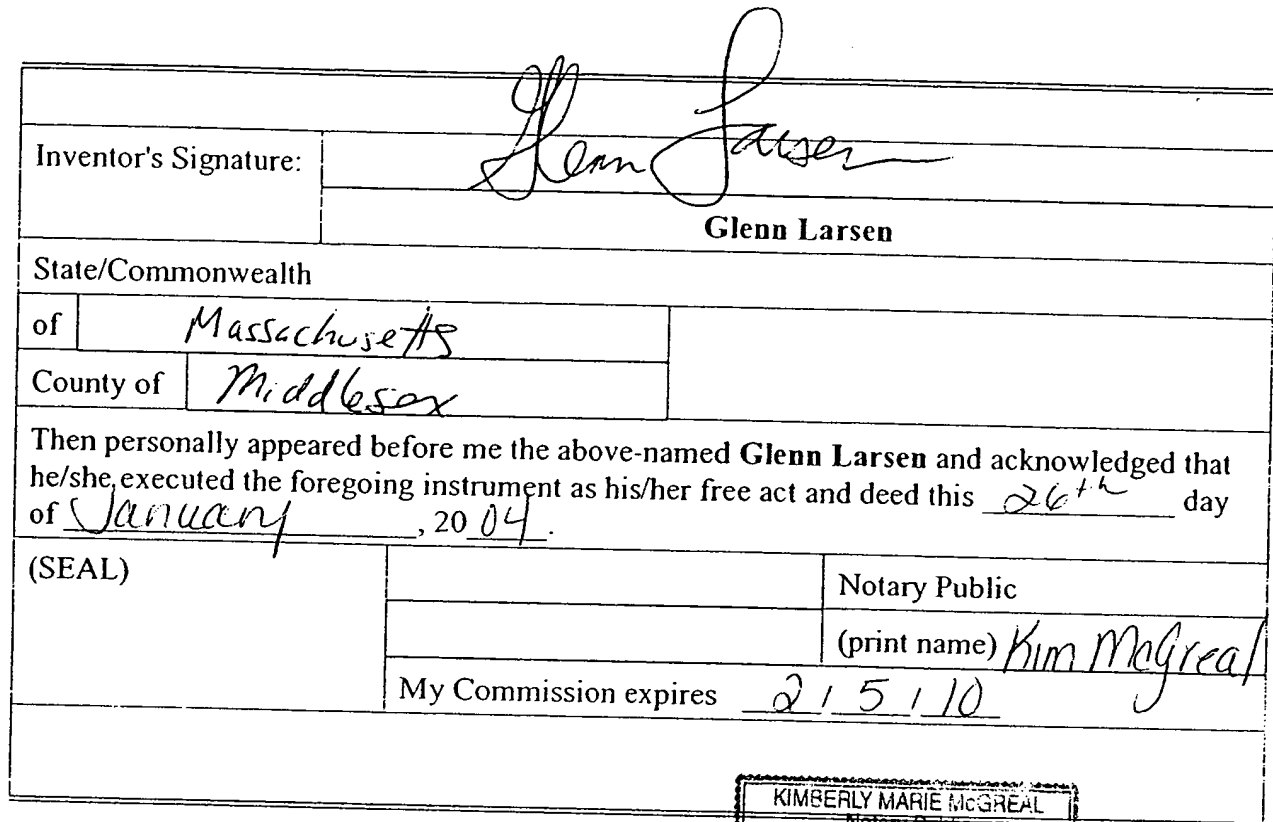 Glenn Larsen
Inventor's Signature:
Glenn Larsen
State/Commonwealth
of Massachusetts
County of Middlesex
Then personally appeared before me the above-named Glenn Larsen and acknowledged that
he/she executed the foregoing instrument as his/her free act and deed this 26th day
of January, 20 04.
(SEAL)
Notary Public
(print name) Kim McGreal
My Commission expires 2/5/10
KIMBERLY MARIE McGREAL
Notary Public